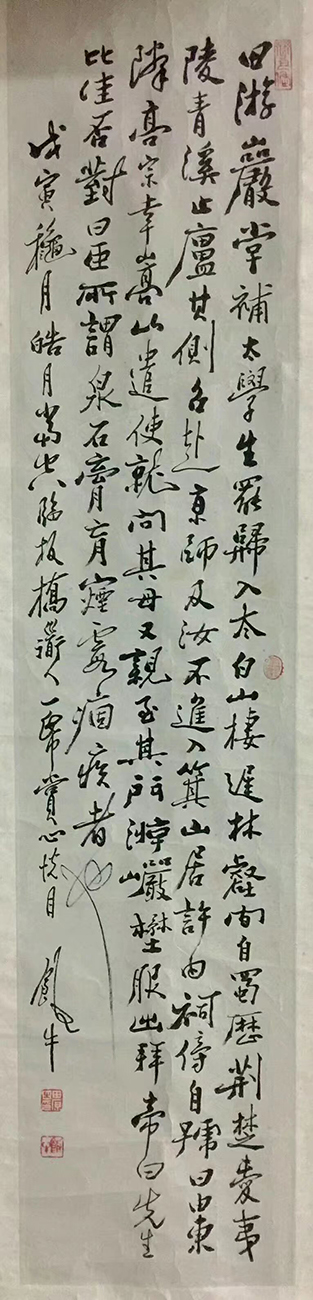 田游巖嘗補太學生罷歸入太白山棲遲林壑間自蜀歷荆楚愛夷
陵青溪止廬其側召赴京師及汝不進入箕山居許由祠傍自號曰由東
隣高宗幸嵩山遣使就問其母又親至其所游巖樊服出拜帝曰先生
比佳否對曰臣所謂泉石膏肓煙霞痼疾者也
戊寅 月皓月當空臨板橋道人一幅賞心悦目 牛